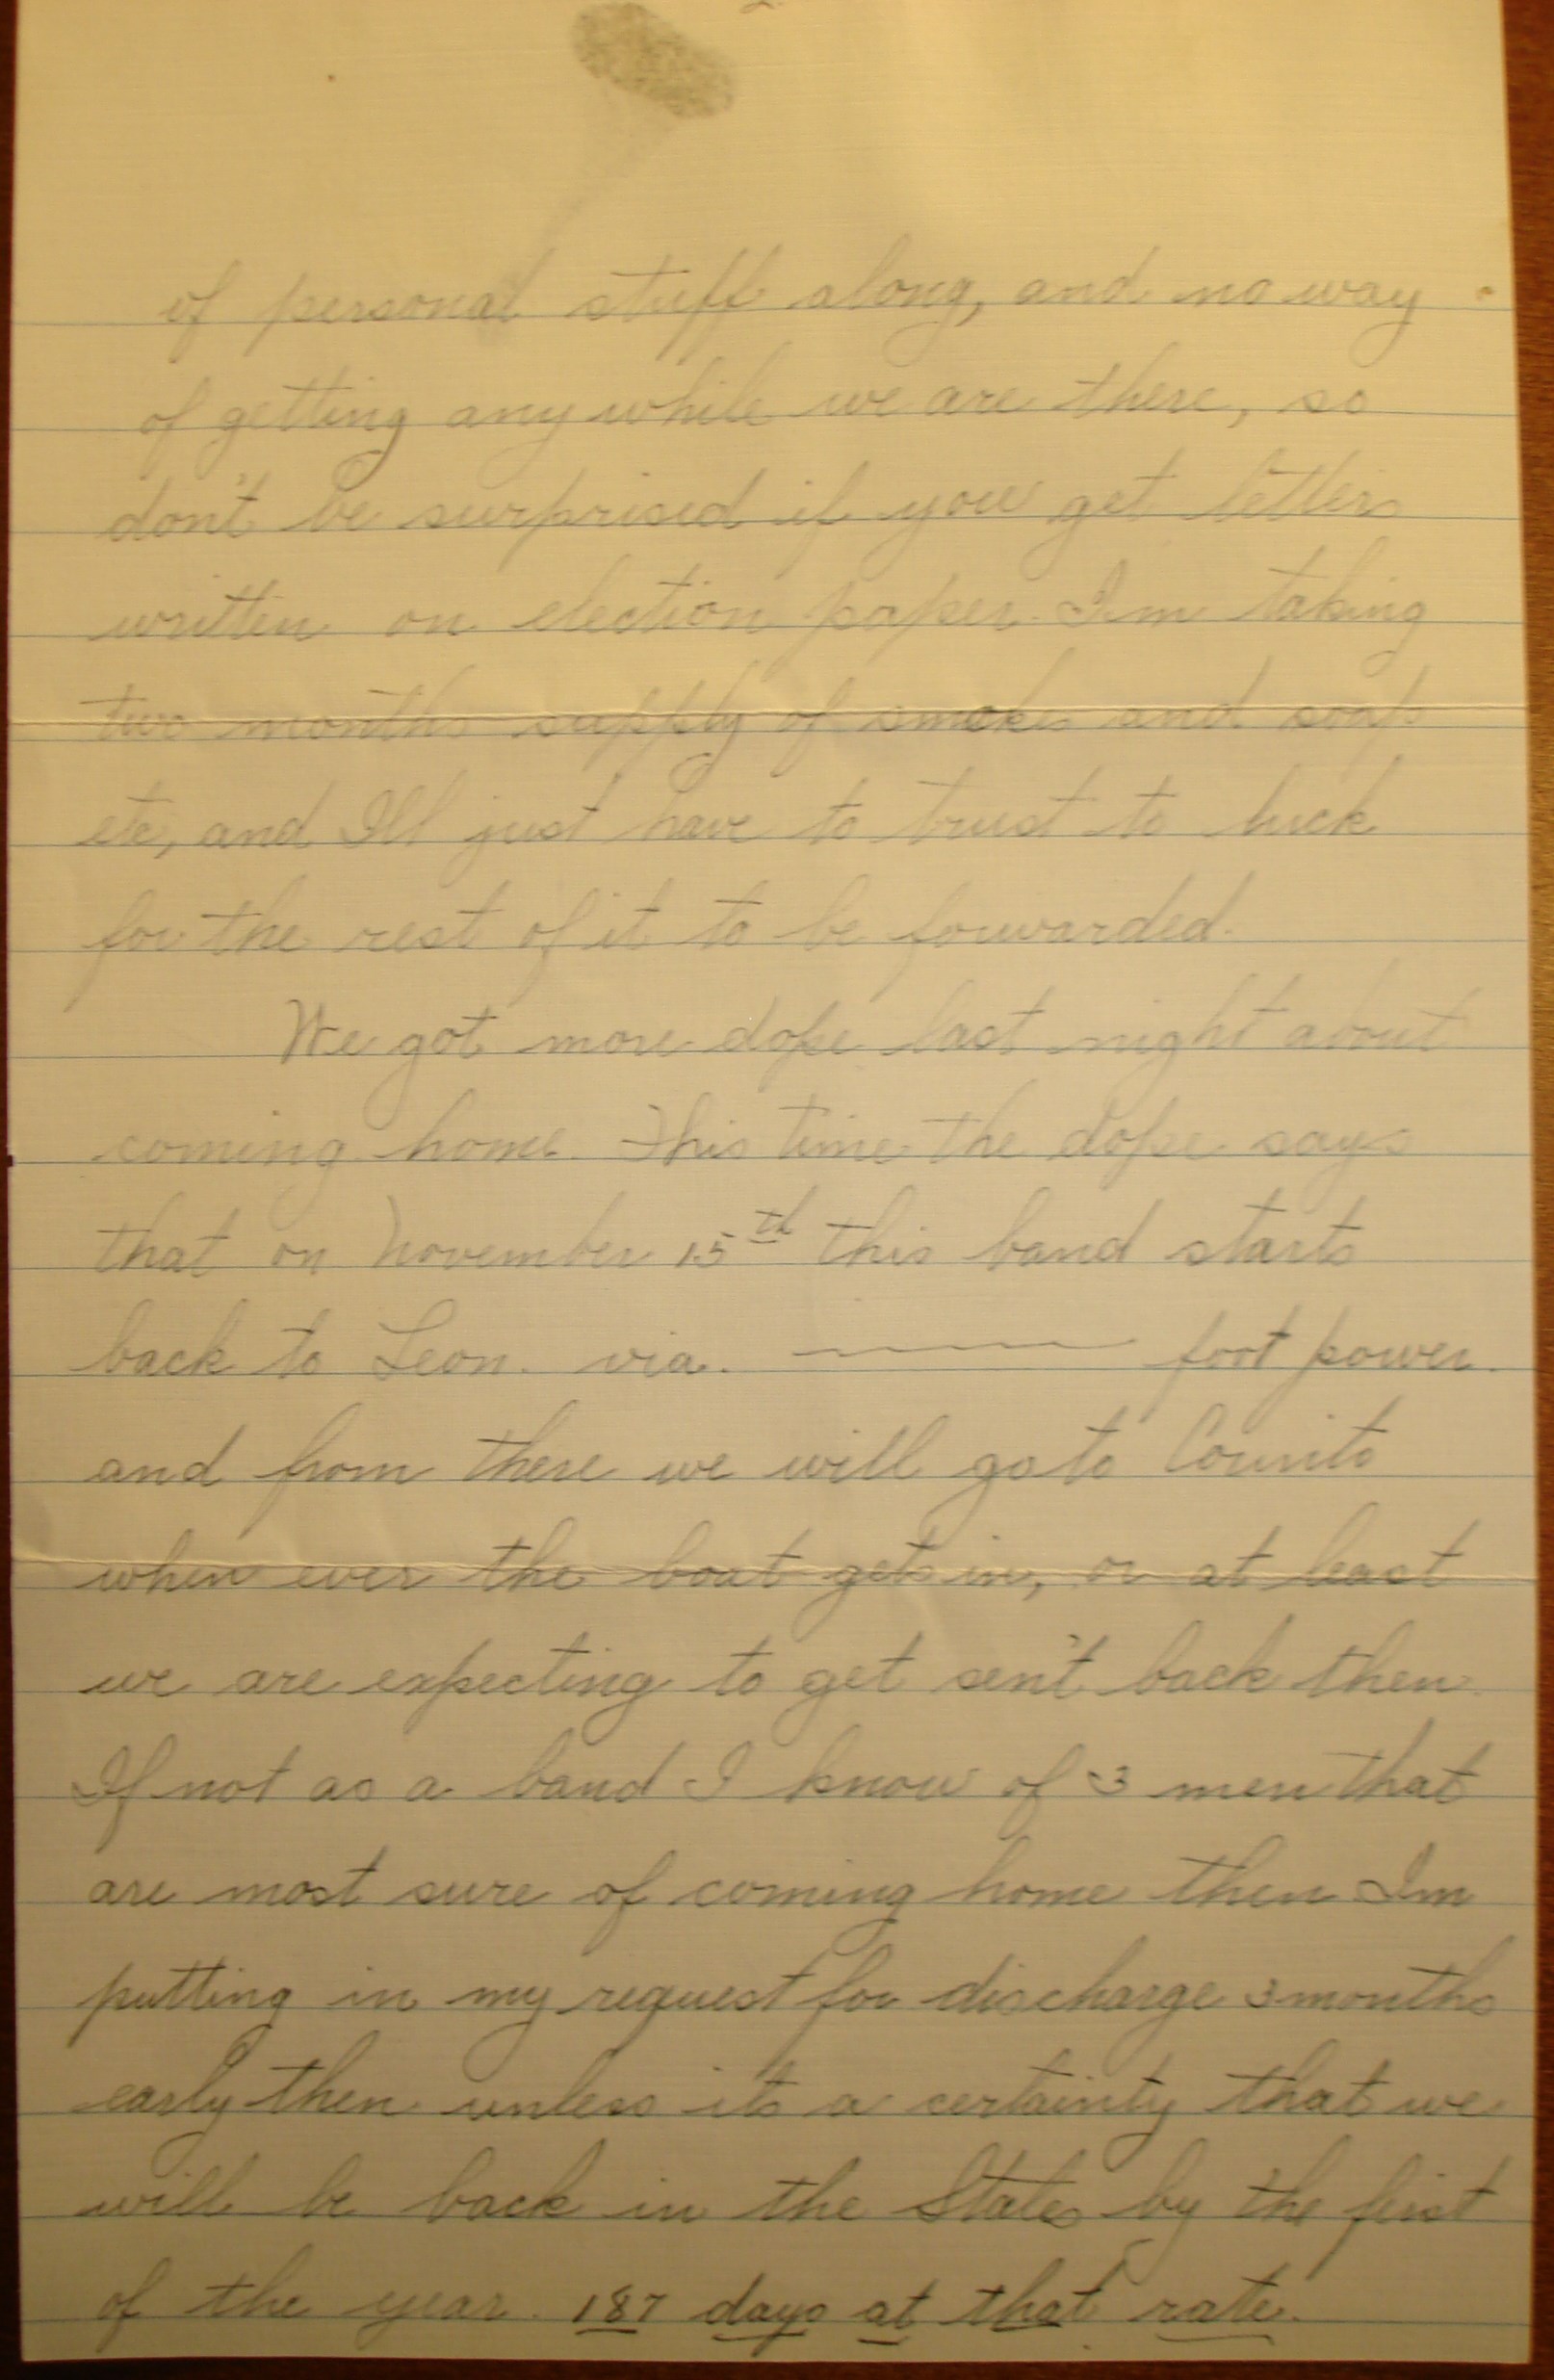 of personal stuff along, and no way
of getting any while we are there, so
don't be surprised if you get letters
written on election paper. I'm taking
two months supply of smokes and soap
etc, and I'll just have to trust to luck
for the rest of it to be forwarded.
We got more dope last night about
coming home. This time the dope says
that on November 15th this band starts
back to Leon. via. —— foot power.
and from there we will go to Corinto
when ever the boat gets in, or at least
we are expecting to get sen't back then.
If not as a band I know of 3 men that
are most sure of coming home then Im
putting in my request for discharge 3 months
early then unless its a certainty that we
will be back in the States by the first
of the year. 187 days at that rate.